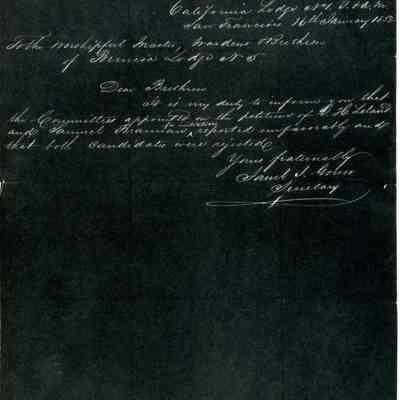 California Lodge No 1. F. & A. M.
San Francisco 16th January 1852
To the Worshipful Master, Wardens & Brethren
of Benicia Lodge No 5
Dear Brethren
It is my duty to inform you that
the Committees appointed on the petition of
and Samuel Brannan, reported unfavorably and
that both candidates were rejected
Yours fraternally
Saml
Secretary